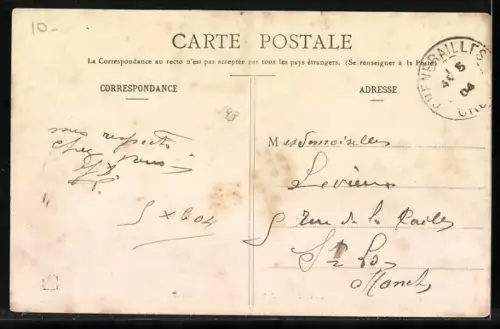 10-
CARTE POSTALE
La Correspondance au recto n'est pas acceptée par tous les pays étrangers. (Se renseigner à la Poste)
CORRESPONDANCE
ADRESSE
mes respects
chez vous
5 X 04
Mesdemoiselles
5 rue de la
St Lo
Manche
04